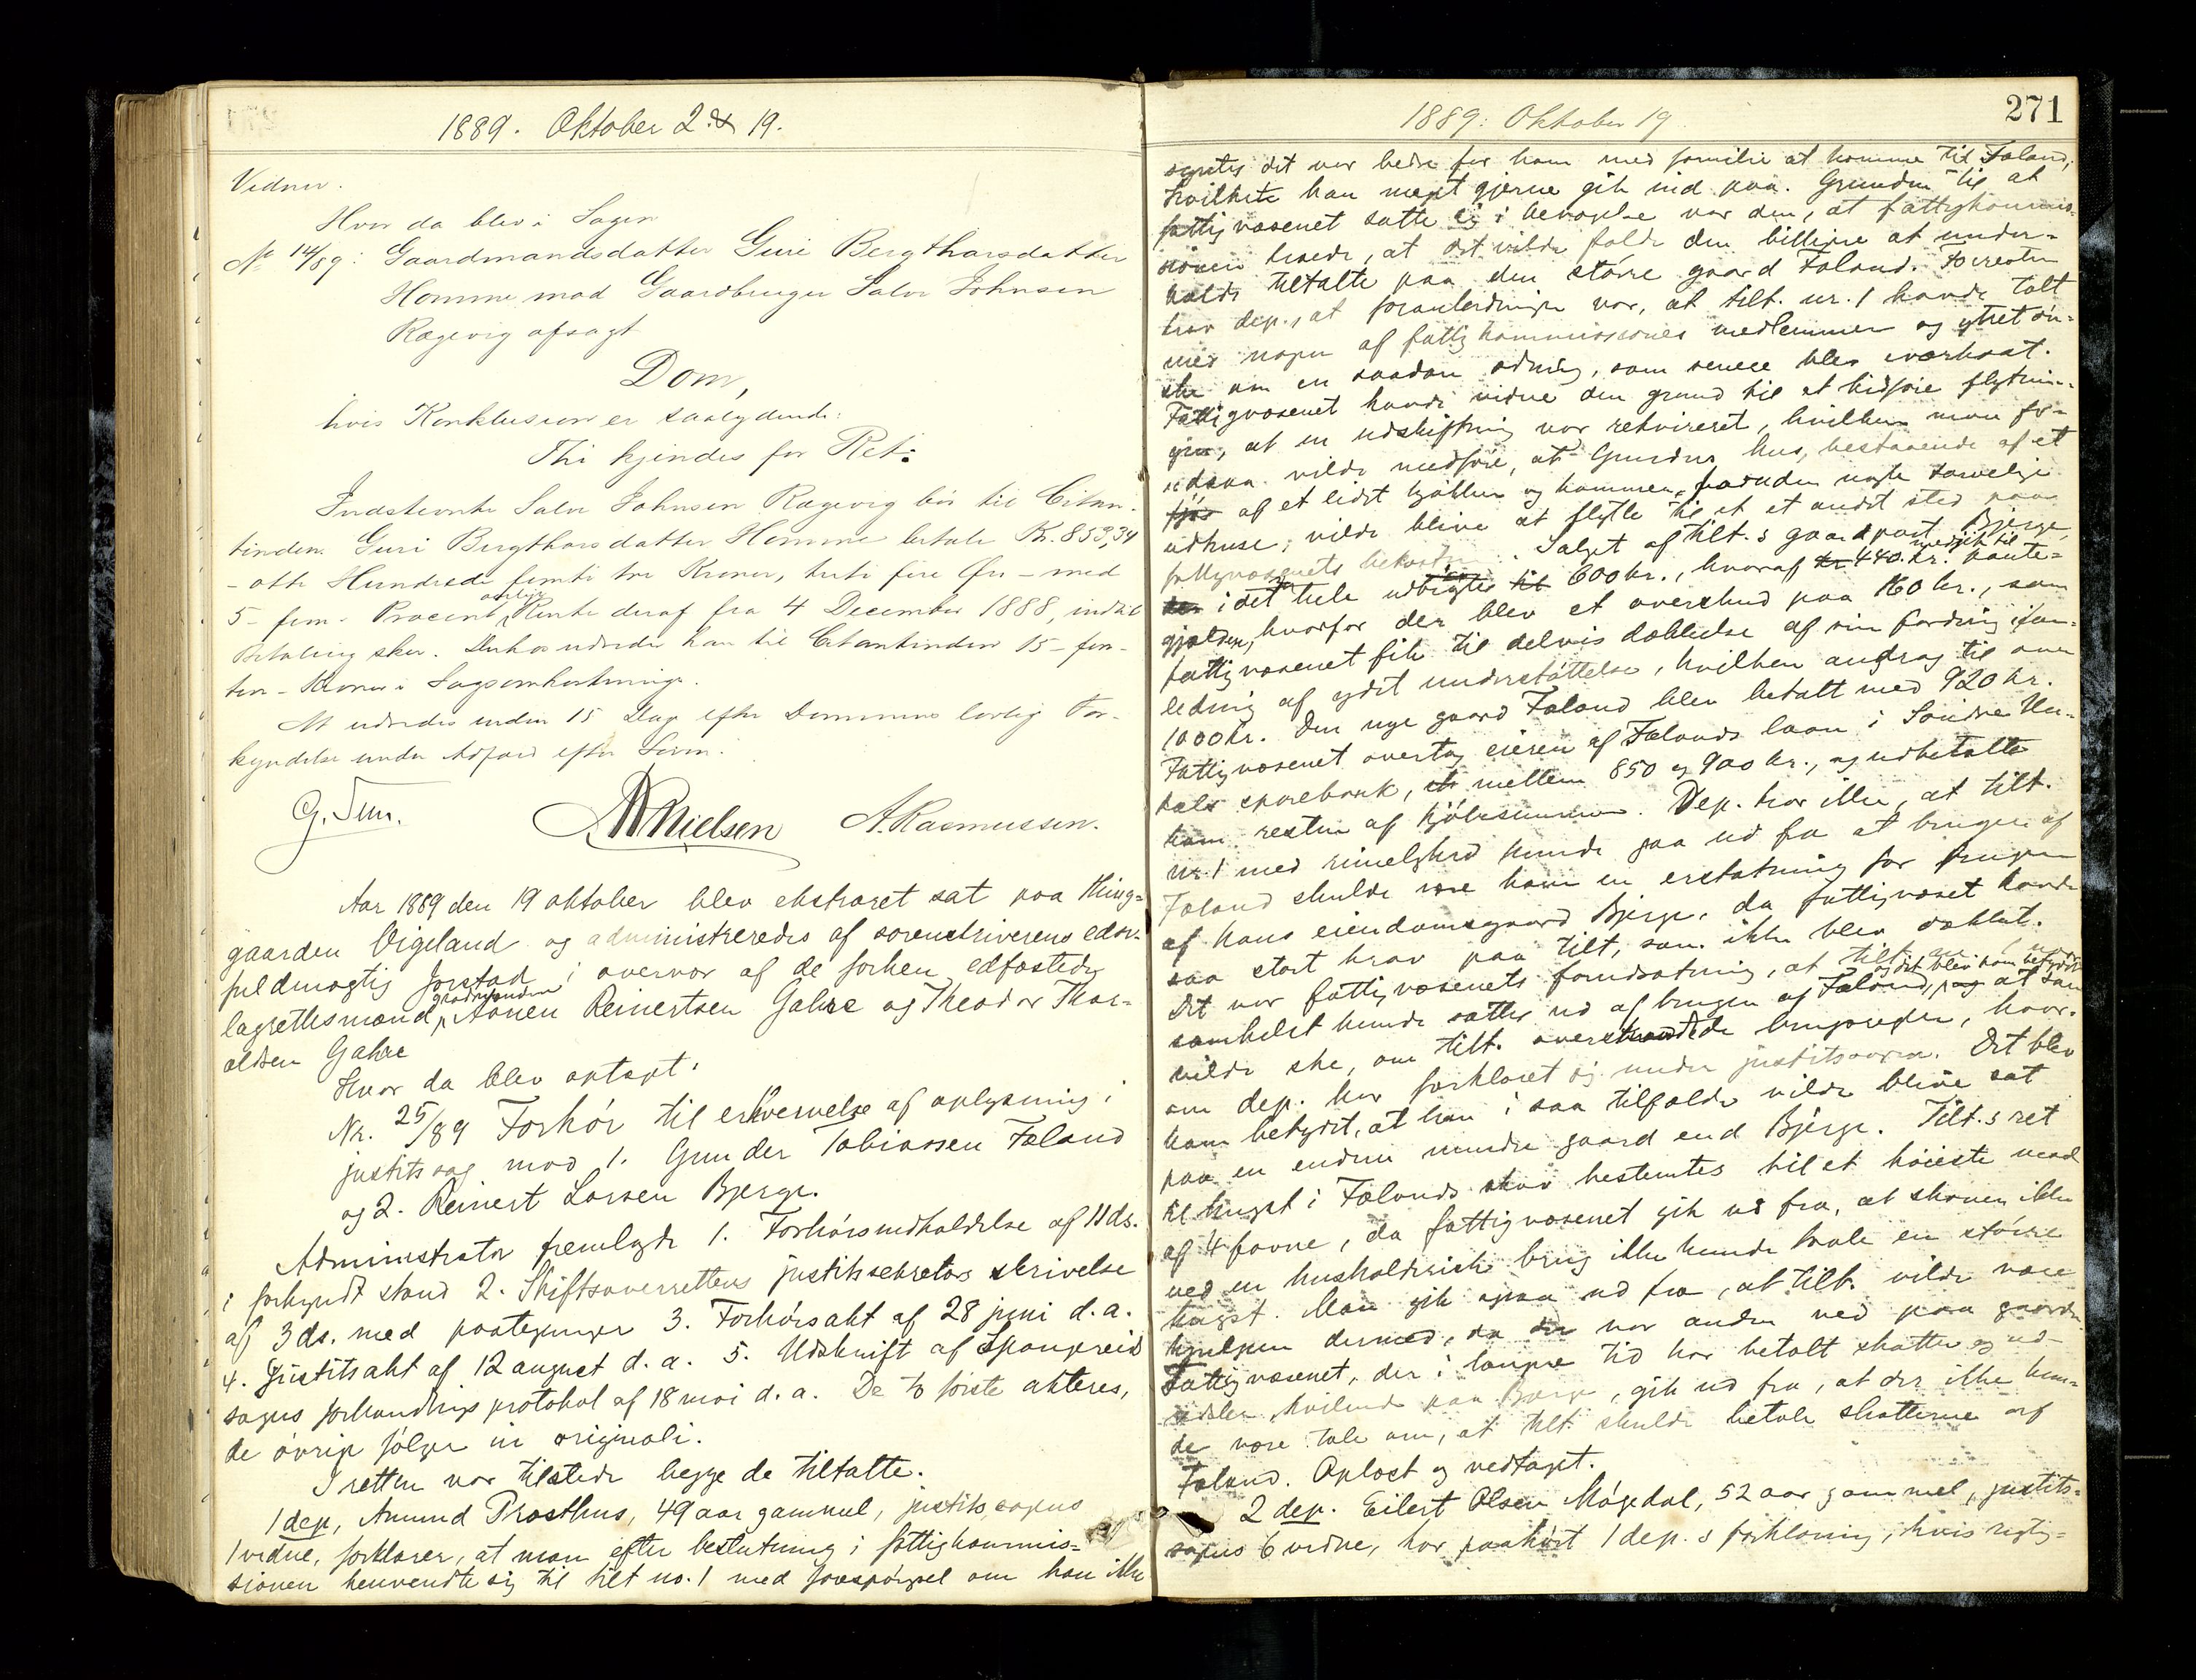 1889. Oktober 2. & 19.
Vidner.
Hvor da blev i Sagen
No 14/89: Gaardmandsdatter Guri Bergthorsdatter
Homme mod Gaardbruger Salve Johnsen
Rægevig afsagt
Dom,
hvis Konklusion er saalydende:
Thi kjendes for Ret:
Indstevnte Salve Johnsen Rægevig bør til Citan-
tinden Guri Bergthorsdatter Homme betale Kr. 853,34
- otte Hundrede femti tre Kroner, treti fire Øre - med
5 - fem - Procent aarlig Rente deraf fra 4 December 1888, indtil
Betaling sker. Derhos udreder han til Citantinden 15 - fem-
ten - Kroner i Sagsomkostninger.
At udredes inden 15 Dage efter Dommens lovlig For-
kyndelse under Adfærd efter Loven.
G. Tum. Nielsen A. Rasmussen.
Aar 1889 den 19 oktober blev ekstraret sat paa thing-
gaarden Vigeland og administreredes af sorenskriverens edsv.
fuldmægtig Jorstad i overvær af de forhen edfæstede
lagrettesmænd, gaardmændene Aanen Reinertsen Gahre og Theodor Thor-
aldsen Gahre
Hvor da blev optaget:
Nr. 25/89 Forhør til erhvervelse af oplysning i
justitssag mod 1. Gunder Tobiassen Faland
og 2. Reinert Larsen Bjerge.
Administrator fremlagde 1. Forhørsindkaldelse af 11 ds.
i forkyndt stand 2. Stiftsoverrettens justitssekretærs skrivelse
af 3 ds. med paategninger 3. Forhørsakt af 28 juni d.a.
4. Justitsakt af 12 august d.a. 5. Udskrift af Spangereid
sogns forhandlings protokol af 18 mai d.a. De to første akteres,
de øvrige følger in originali.
I retten var tilstede begge de tiltalte.
1 dep, Amund Prosthus, 49 aar gammel, justitssagens
1 vidne, forklarer, at man efter beslutning i fattigkommis-
sionen henvendte sig til tilt no. 1 med forespørgsel om han ikke
1889: Oktober 19. 271
syntes det var bedre for ham med familie at komme til Faland,
hvilket han meget gjerne gik ind paa. Grunden til, at
fattigvæsenet satte sig i bevægelse var den, at fattigkommis-
sionen troede, at det vilde falde den billigere at under-
holde tiltalte paa den større gaard Faland. Forresten
tror dep., at foranledningen var, at tilt. nr. 1 havde talt
med nogen af fattigkommissionens medlemmer og ytret øn-
ske om en saadan ordning, som senere blev iværksat.
Fattigvæsenet havde videre den grund til at tilføie flytnin-
gen, at en udskiftning var rekvireret, hvilken man for-
udsaa vilde medføre, at Gunders hus, bestaaende af et
af et lidet kjøkken og kammer, foruden nogle tarvelige
udhuse, vilde blive at flytte til et andet sted paa
fattigvæsenets bekostning. Salget af tilt.s gaardpart Bjerge
i det hele udbragte 600 kr., hvoraf 440 kr. medgik til pante-
gjælden, hvorfor der blev et overskud paa 160 kr., som
fattigvæsenet fik til delvis dækkelse af sin fordring i an-
ledning af ydet understøttelse, hvilken androg til over
1000 kr. Den nye gaard Faland blev betalt med 920 kr.
Fattigvæsenet overtog eieren af Falands laan i Søndre Un-
dals sparebank, mellem 850 og 900 kr., og udbetalte
ham resten af kjøbesummen. Dep. tror ikke, at tilt.
nr. 1 med rimelighed kunde gaa ud fra at brugen af
Faland skulde være ham en erstatning for brugen
af hans eiendomsgaard Bjerge, da fattigvæsenet havde
saa stort krav paa tilt, som ikke blev dækket.
Det var fattigvæsenets forudsætning, at tilt.
samhelst kunde sættes ud af brugen af Faland, og det blev ham betydet at saa
vilde ske, om tilt. overskred brugsreglen, hvor-
om dep. har forklaret sig under justitssagen. Det blev
ham betydet, at han i saa tilfælde vilde blive sat
paa en endnu mindre gaard end Bjerge. Tilt.s ret
til hugst i Falands skov bestemtes til et høieste maal
af 4 favne, da fattigvæsenet gik ud fra, at skoven ikke
ved en husholderisk brug ikke kunde taale en større
hugst. Man gik ogsaa ud fra, at tilt. vilde være
hjulpen dermed, da der var anden ved paa gaarden.
Fattigvæsenet, der i længre tid har betalt skatter og ud-
gifter, hvilende paa Bjerge, gik ud fra, at der ikke kun-
de være tale om, at tilt. skulde betale skatterne af
Faland. Oplæst og vedtaget.
2 dep. Eilert Olsen Møgedal, 52 aar gammel, justits-
sagens 6 vidne, har paahørt 1 dep.s forklaring, hvis rigtig-